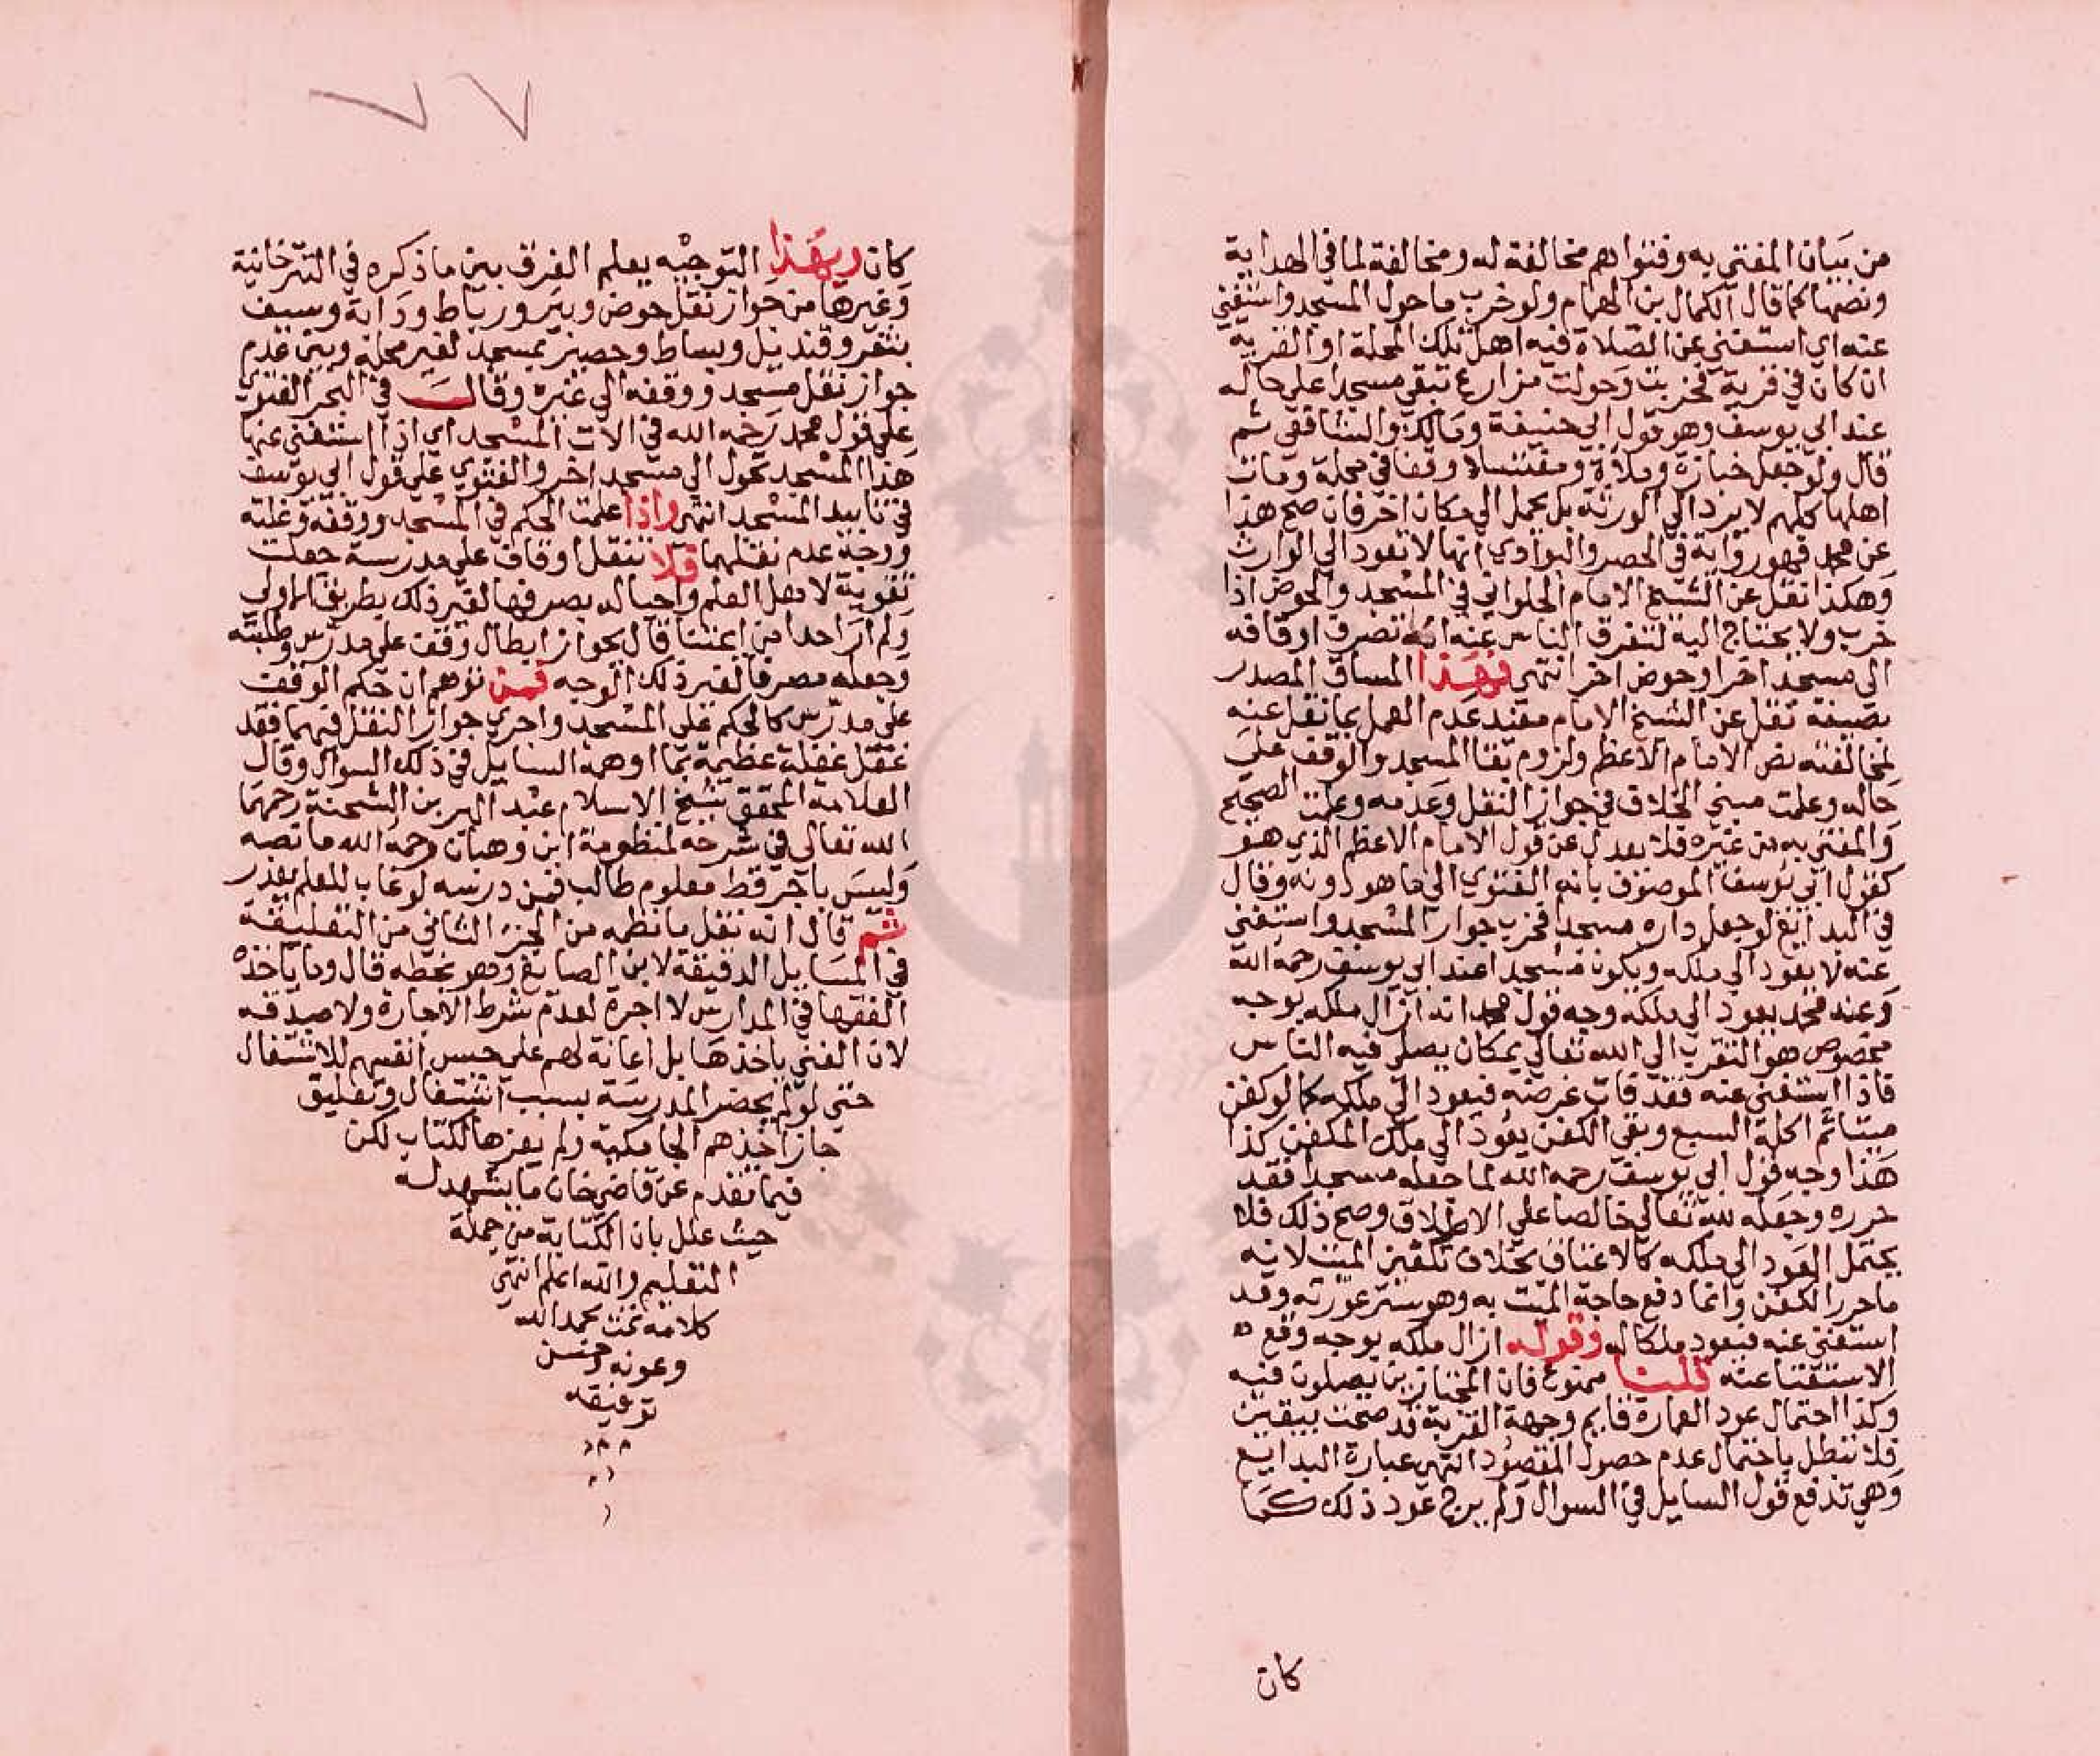 من بيان المفتى به وفتواهم مخالفة له ومخالفة لما في الهداية
ونصها كما قال الكمال بن الهمام ولو خرب ما حول المسجد واستغنى
عنه اي استغنى عن الصلاة فيه اهل تلك المحلة او القرية
ان كان في قرية فخربت وحولت مزارع تبقى مسجدا على حاله
عند ابي يوسف وهو قول ابي حنيفة ومالك والشافعي ثم
قال ولو جعل جنازة وملاءة ومغتسلا وقفا في محلة ومات
اهلها كلهم لا يرد الى الورثة بل يحمل الى مكان اخر فان صح هذا
عن محمد فهو رواية في الحصر والبوادي انها لا تعود الى الوارث
وهكذا نقل عن الشيخ الامام الحلواني في المسجد والحوض اذا
خرب ولا يحتاج اليه لتفرق الناس عنه انه تصرف اوقافه
الى مسجد اخر او حوض اخر انتهى فهذا المساق المصدر
بصيغة نقل عن الشيخ الامام مفيد عدم العمل بما نقل عنه
لمخالفته نص الامام الاعظم ولزوم بقا المسجد والوقف على
حاله وعلمت مبنى الخلاف في جواز النقل وعدمه وعلمت الصحيح
والمفتى به من غيره فلا يعدل عن قول الامام الاعظم الذي هو
كقول ابي يوسف الموصوف بانه الفتوى الى ما هو دونه وقال
في البدايع لو جعل داره مسجدا فخرب جوار المسجد واستغنى
عنه لا يعود الى ملكه ويكون مسجدا عند ابي يوسف رحمه الله
وعند محمد يعود الى ملكه وجه قول محمد انه ازال ملكه بوجه
مخصوص هو التقرب الى الله تعالى بمكان يصلى فيه الناس
فاذا استغنى عنه فقد فات غرضه فيعود الى ملكه كما لو كفن
ميتا ثم اكله السبع وبقي الكفن يعود الى ملك المكفن كذا
هذا وجه قول ابي يوسف رحمه الله لما جعله مسجدا فقد
حرره وجعله لله تعالى خالصا على الاطلاق وصح ذلك فلا
يحتمل العود الى ملكه كالاعتاق بخلاف تكفين الميت لانه
ما حرر الكفن وانما دفع حاجة الميت به وهو ستر عورته وقد
استغنى عنه فيعود ملكا له وقوله ازال ملكه بوجه وقع
الاستغنا عنه قلنا ممنوع فان المجتازين يصلون فيه
وكذا احتمال عود العمارة قايم وجهة القربة قد صحت بيقين
فلا تبطل باحتمال عدم حصول المقصود انتهى عبارة البدايع
وهي تدفع قول السايل في السوال ولم يرج عود ذلك كما
كان
٧٧
كان وبهذا التوجيه يعلم الفرق بين ما ذكره في التترخانية
وغيرها من جواز نقل حوض وبير ورباط ودابة وسيف
بثغر وقنديل وبساط وحصير بمسجد لغير محله وبين عدم
جواز نقل مسجد ووقفه الى غيره وقال في البحر الفتوى
على قول محمد رحمه الله في الات المسجد اي اذا استغنى عنها
هذا المسجد تحول الى مسجد اخر والفتوى على قول ابي يوسف
في تابيد المسجد انتهى واذا علمت الحكم في المسجد ووقفه وغلته
ووجه عدم نقلها فلا تنقل اوقاف على مدرسة جعلت
تقوية لاهل العلم واحيا له بصرفها لغير ذلك بطريق الاولى
ولم ار احدا من ايمتنا قال بجواز ابطال وقف على مدرس وطلبته
وجعله مصرفا لغير ذلك الوجه فمن توهم ان حكم الوقف
على مدرس كالحكم على المسجد واجرى جواز النقل فيهما فقد
غفل غفلة عظيمة بما اوهمه السايل في ذلك السوال وقال
العلامة المحقق شيخ الاسلام عبد البر بن الشحنة رحمهما
الله تعالى في شرحه لمنظومة ابن وهبان رحمه الله ما نصه
وليس باجر قط معلوم طالب فمن درسه لو غاب للعلم يعذر
ثم قال انه نقل ما نظمه من الجزء الثاني من التعليقة
في المسايل الدقيقة لابن الصايغ وهو بخطه قال وما ياخذه
الفقها في المدارس لا اجرة لعدم شرط الاجارة ولا صدقة
لان الغني ياخذها بل اعانة لهم على حبس انفسهم للاشتغال
حتى لو لم يحضر المدرسة بسبب اشتغال وتعليق
جاز اخذهم الجامكية ولم يعزها لكتاب لكن
فيما تقدم عن قاضي خان ما يشهد له
حيث علل بان الكتابة من جملة
التعليم والله اعلم انتهى
كلامه تمت بحمد الله
وعونه وحسن
توفيقه